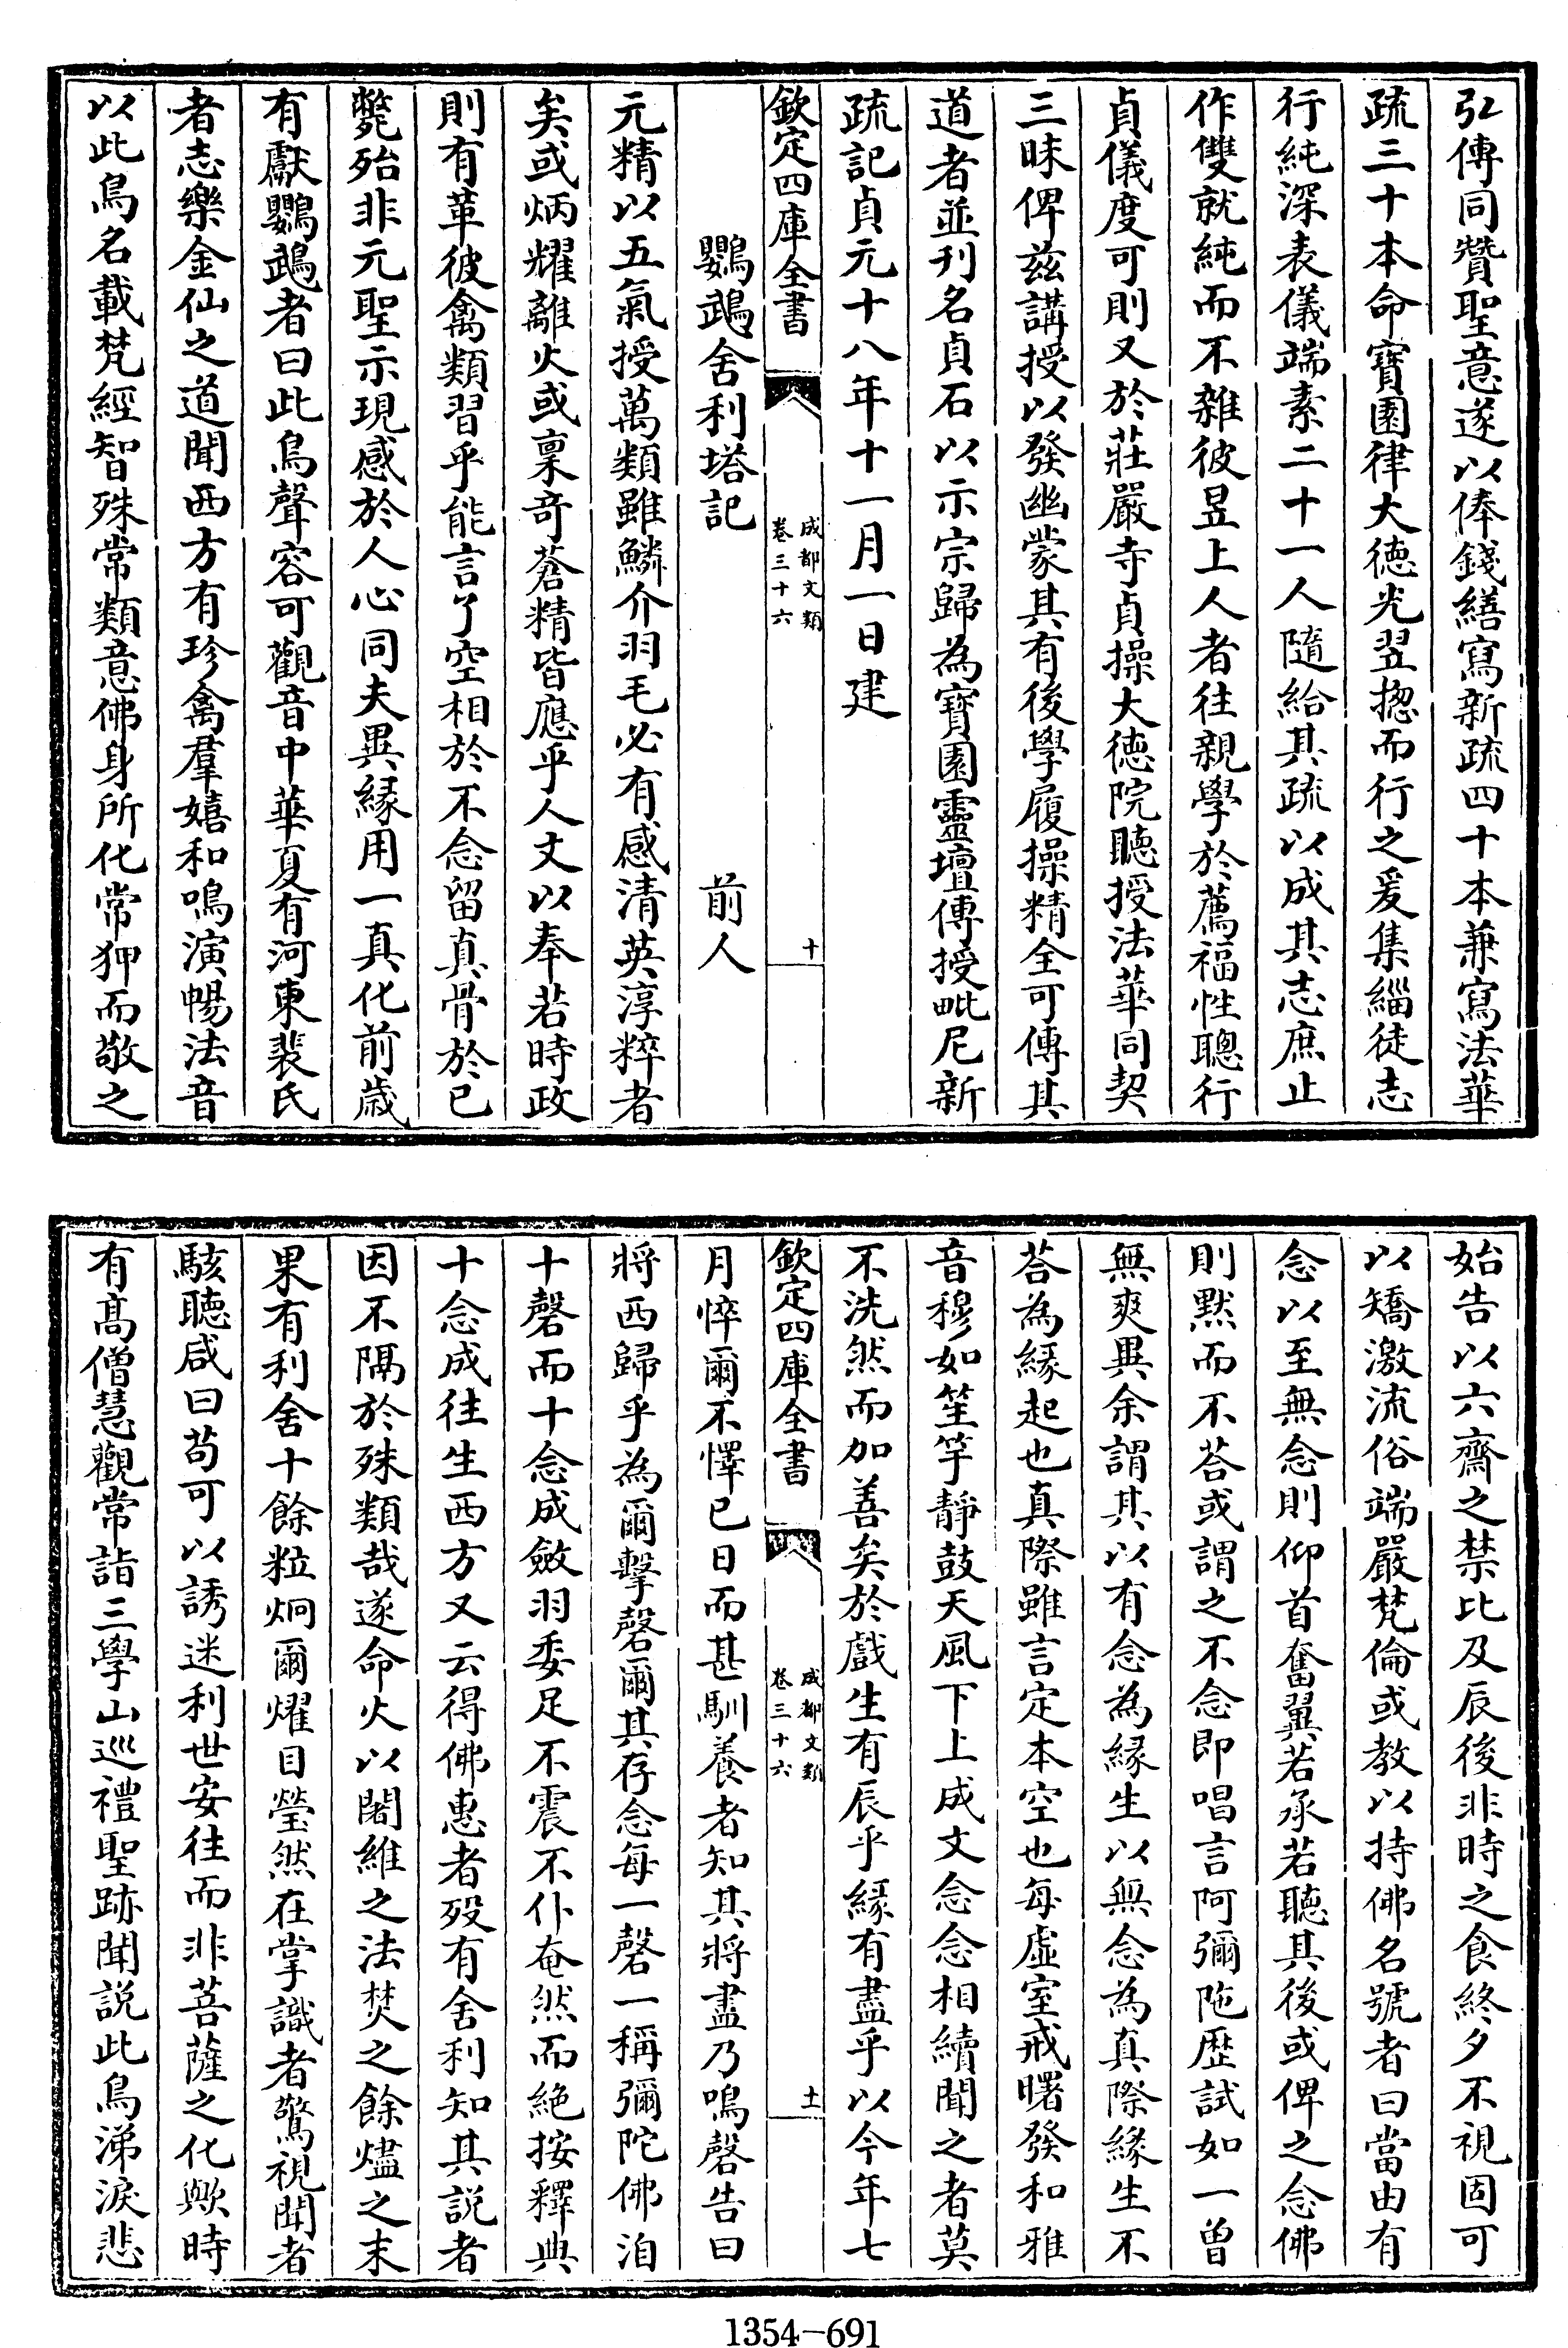 弘傳同贊聖意遂以俸錢繕寫新疏四十本兼寫法華
疏三十本命寳園律大徳光翌揔而行之爰集緇徒志
行純深表儀端素二十一人隨給其疏以成其志庶止
作雙就純而不雜彼昱上人者往親學於薦福性聰行
貞儀度可則又於莊嚴寺貞操大徳院聽授法華同契
三昧俾兹講授以發幽蒙其有後學履操精全可傳其
道者並刊名貞石以示宗歸為寳園靈壇傳授毗尼新
疏記貞元十八年十一月一日建
欽定四庫全書
成都文類
卷三十六
十
鸚鵡舍利塔記
前人
元精以五氣授萬類雖鱗介羽毛必有感清英淳粹者
矣或炳耀離火或稟奇蒼精皆應乎人文以奉若時政
則有革彼禽類習乎能言了空相於不念留真骨於已
斃殆非元聖示現感於人心同夫異緣用一真化前歲
有獻鸚鵡者曰此鳥聲容可觀音中華夏有河東裴氏
者志樂金仙之道聞西方有珍禽羣嬉和鳴演暢法音
以此鳥名載梵經智殊常類意佛身所化常狎而敬之
始告以六齋之禁比及辰後非時之食終夕不視固可
以矯激流俗端嚴梵倫或教以持佛名號者曰當由有
念以至無念則仰首奮翼若承若聽其後或俾之念佛
則黙而不荅或謂之不念即唱言阿彌陁歴試如一曽
無爽異余謂其以有念為緣生以無念為真際緣生不
荅為緣起也真際雖言定本空也每虛室戒曙發和雅
音穆如笙竽靜鼓天風下上成文念念相續聞之者莫
不洗然而加善矣於戲生有辰乎緣有盡乎以今年七
欽定四庫全書
成都文類
卷三十六
十一
月悴爾不懌已日而甚馴養者知其將盡乃鳴磬告曰
將西歸乎為爾擊磬爾其存念每一磬一稱彌陀佛洎
十磬而十念成斂羽委足不震不仆奄然而絶按釋典
十念成往生西方又云得佛惠者殁有舍利知其説者
因不隔於殊類哉遂命火以闍維之法焚之餘燼之末
果有利舍十餘粒炯爾耀目瑩然在掌識者驚視聞者
駭聽咸曰苟可以誘迷利世安往而非菩薩之化歟時
有髙僧慧觀常詣三學山巡禮聖跡聞説此鳥涕淚悲
1354-691